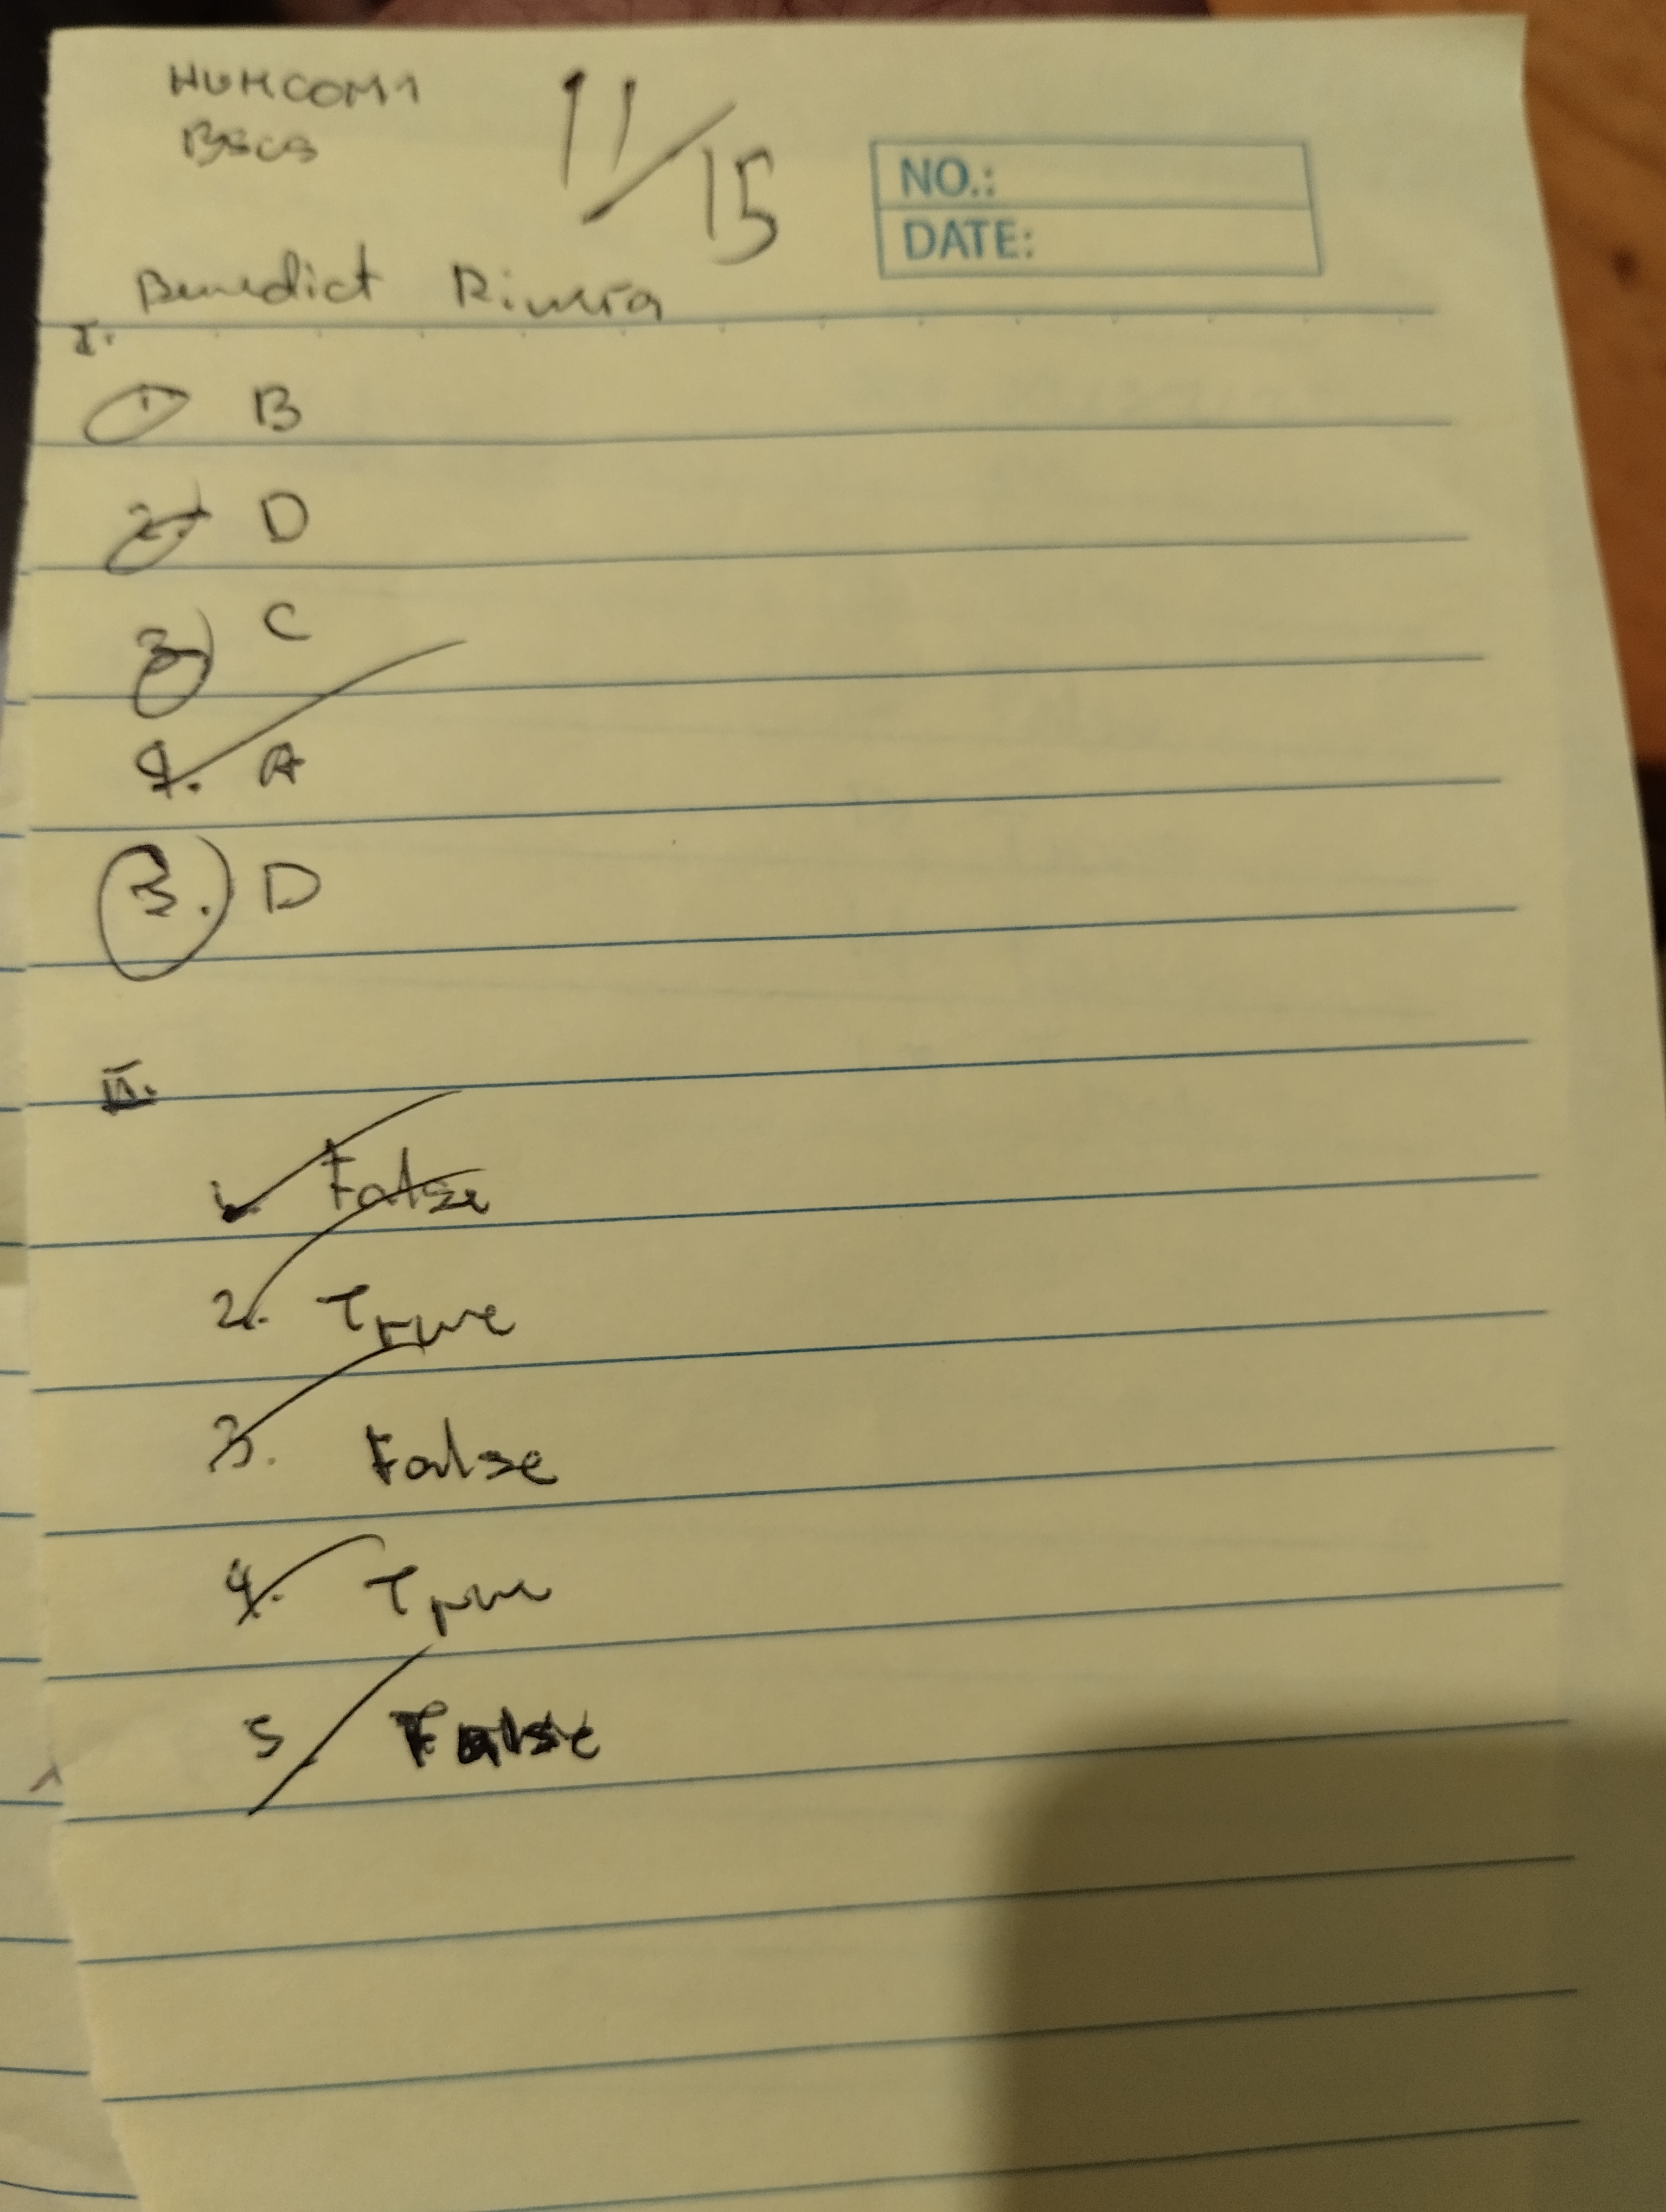 HUMCOM1
BSCS
11/15
NO.:
DATE:
Benedict Rivera
I.
1. B
2. D
3. C
4. A
5. D
II.
1. False
2. True
3. False
4. True
5. False